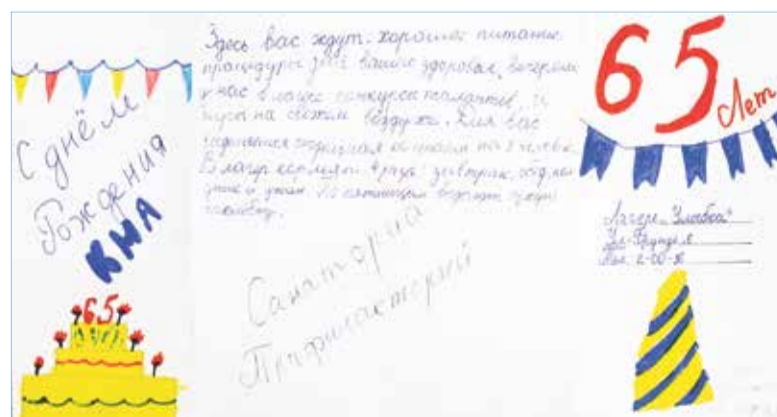 С днём
Рождения
КНА
65
Здесь вас ждут: хорошее питание,
процедуры для вашего здоровья, вечерами
у нас в лагере конкурсы талантов, и
на свежем воздухе. Для вас
на 2 человек.
В лагере кормят 4 раза: завтрак, обед, пол
дник и ужин. По пятницам
Санаторий
Профилакторий
65
Лет
Лагерь "Улыбка"
Ул. Фрунзе
Тел: 2-00-